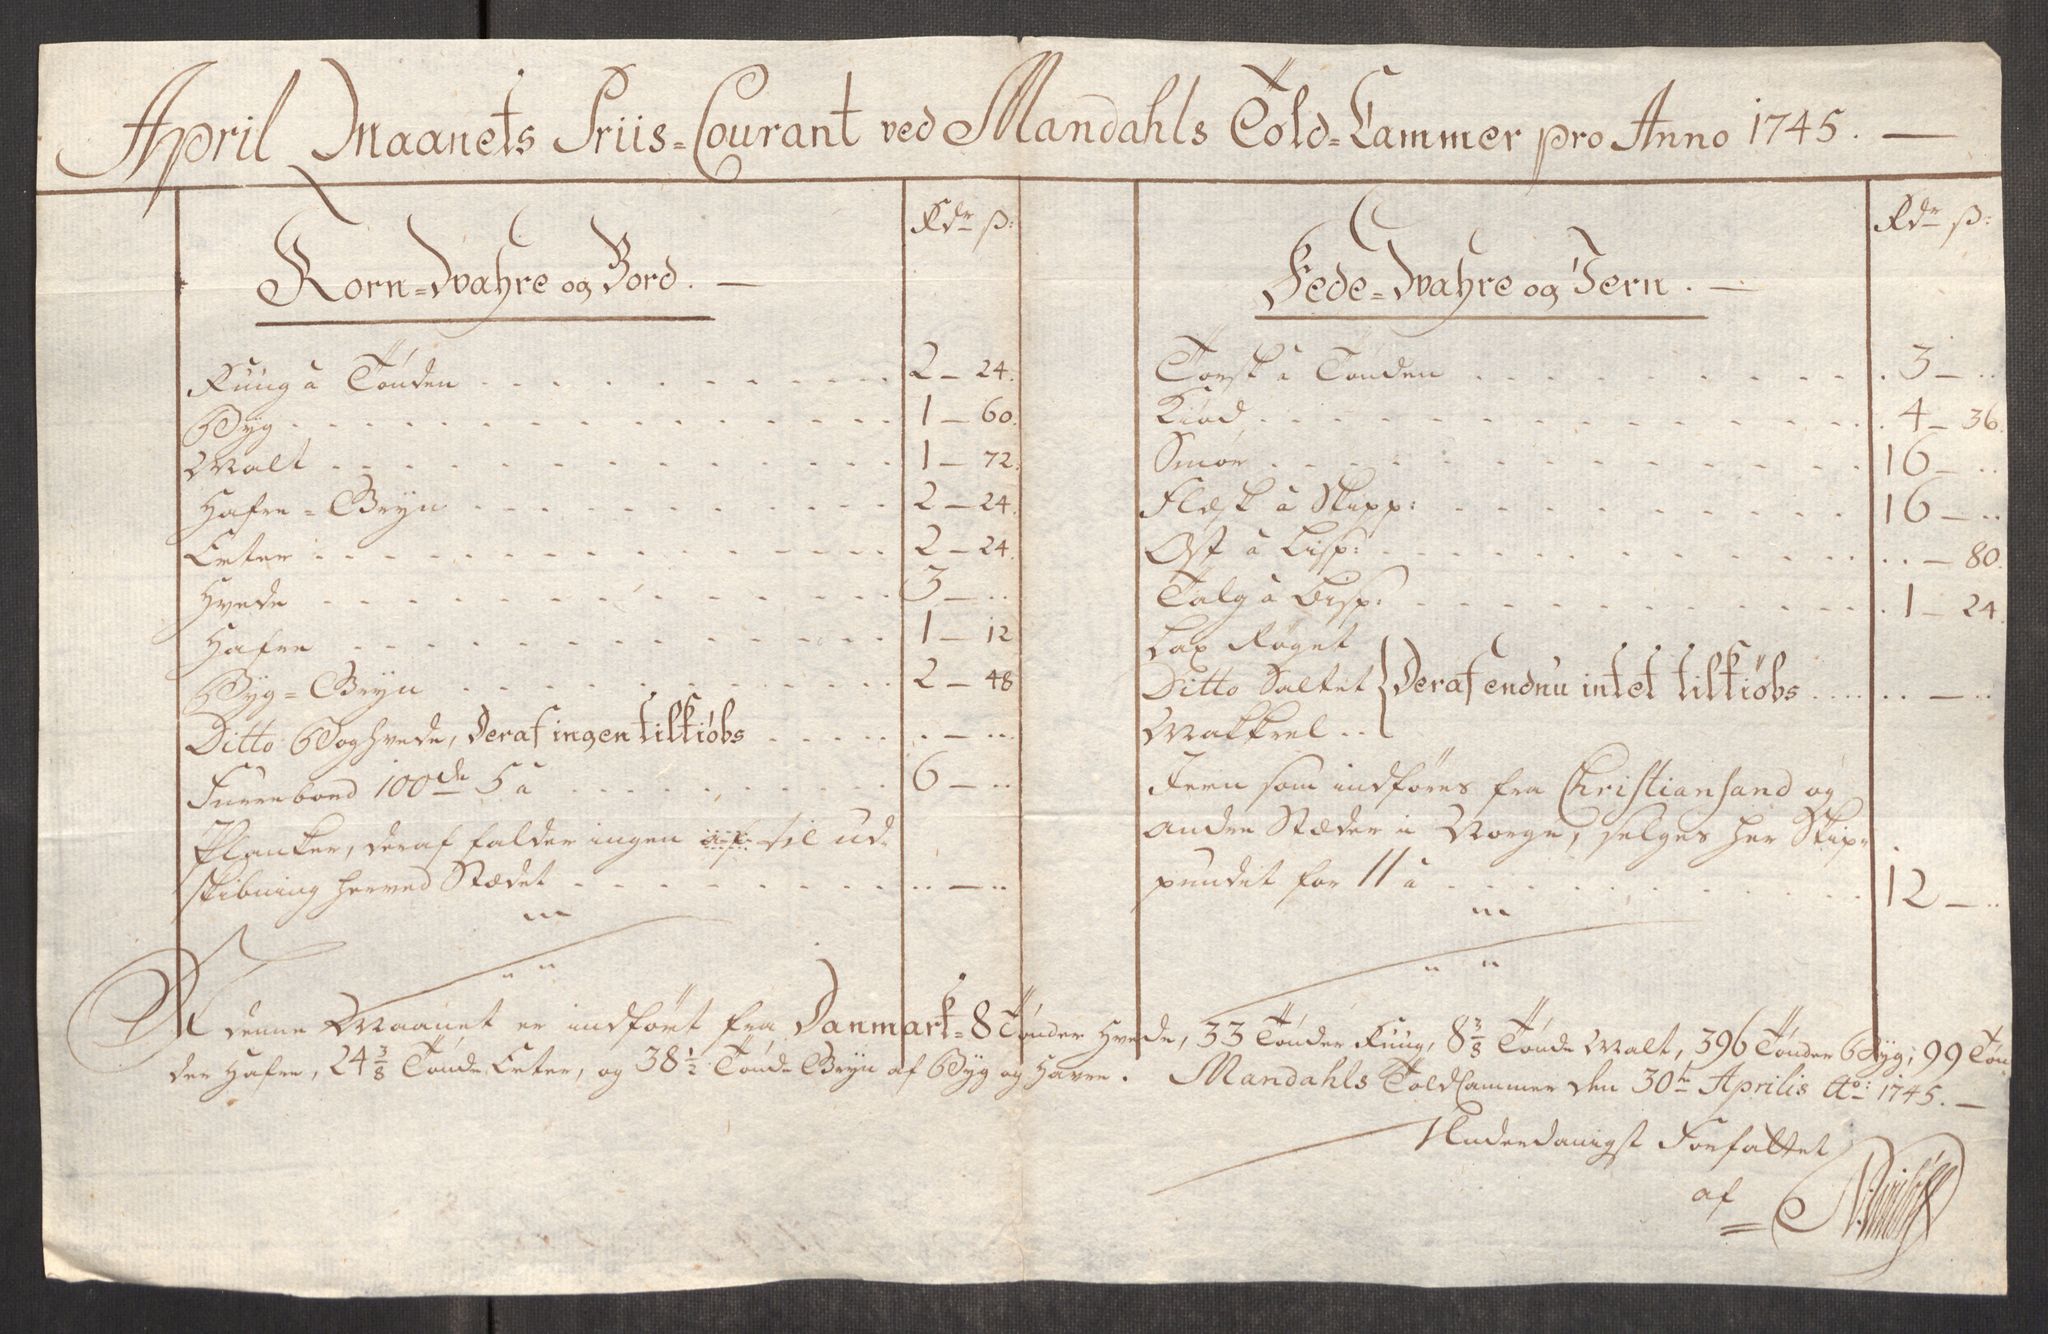 April Maanets Priis-Courant ved Mandahls Told-Cammer pro Anno 1745. —
Rdr ß:
Korn-Wahre og Bord. —
Rung à Tønden . . . 2 — 24.
Byg . . . 1 — 60.
Malt . . . 1 — 72.
Hafre-Gryn . . . 2 — 24.
Erter . . . 2 — 24.
Hvede . . . 3 — ..
Hafre . . . 1 — 12
Byg-Gryn . . . 2 — 48
Ditto Boghvede, deraf ingen tilkiøbs . . . .. — ..
Furrebord 100de 5 à . . . 6 — ..
Planker, deraf falder ingen af til ud-
skibning herved Stædet . . . .. — ..
Rdr ß:
Fede-Wahre og Jern. —
Torsk à Tønden . . . 3 — ..
Kiød . . . 4 — 36.
Smør . . . 16 — ..
Flesk à Skipp: . . . 16 — ..
Ost à Lisp: . . . .. — 80.
Talg à Lisp: . . . 1 — 24.
Lax Røget
Ditto Saltet } Deraf endnu intet tilkiøbs . . . .. — ..
Makkrel ..
Jern som indføres fra Christiansand og
andre Stæder i Norge, selges her Skip-
pundet for 11 à . . . 12 — ..
I denne Maanet er indført fra Danmark- 8 Tønder Hvede, 33 Tønder Rung, 8 3/8 Tønde Malt, 396 Tønder Byg, 99 Tøn-
der Hafre, 24 3/8 Tønde Erter, og 38 1/2 Tønde Gryn af Byg og Havre. Mandahls Told Cammer den 30te Aprilis Ao: 1745. —
Underdanigst Forfattet
af